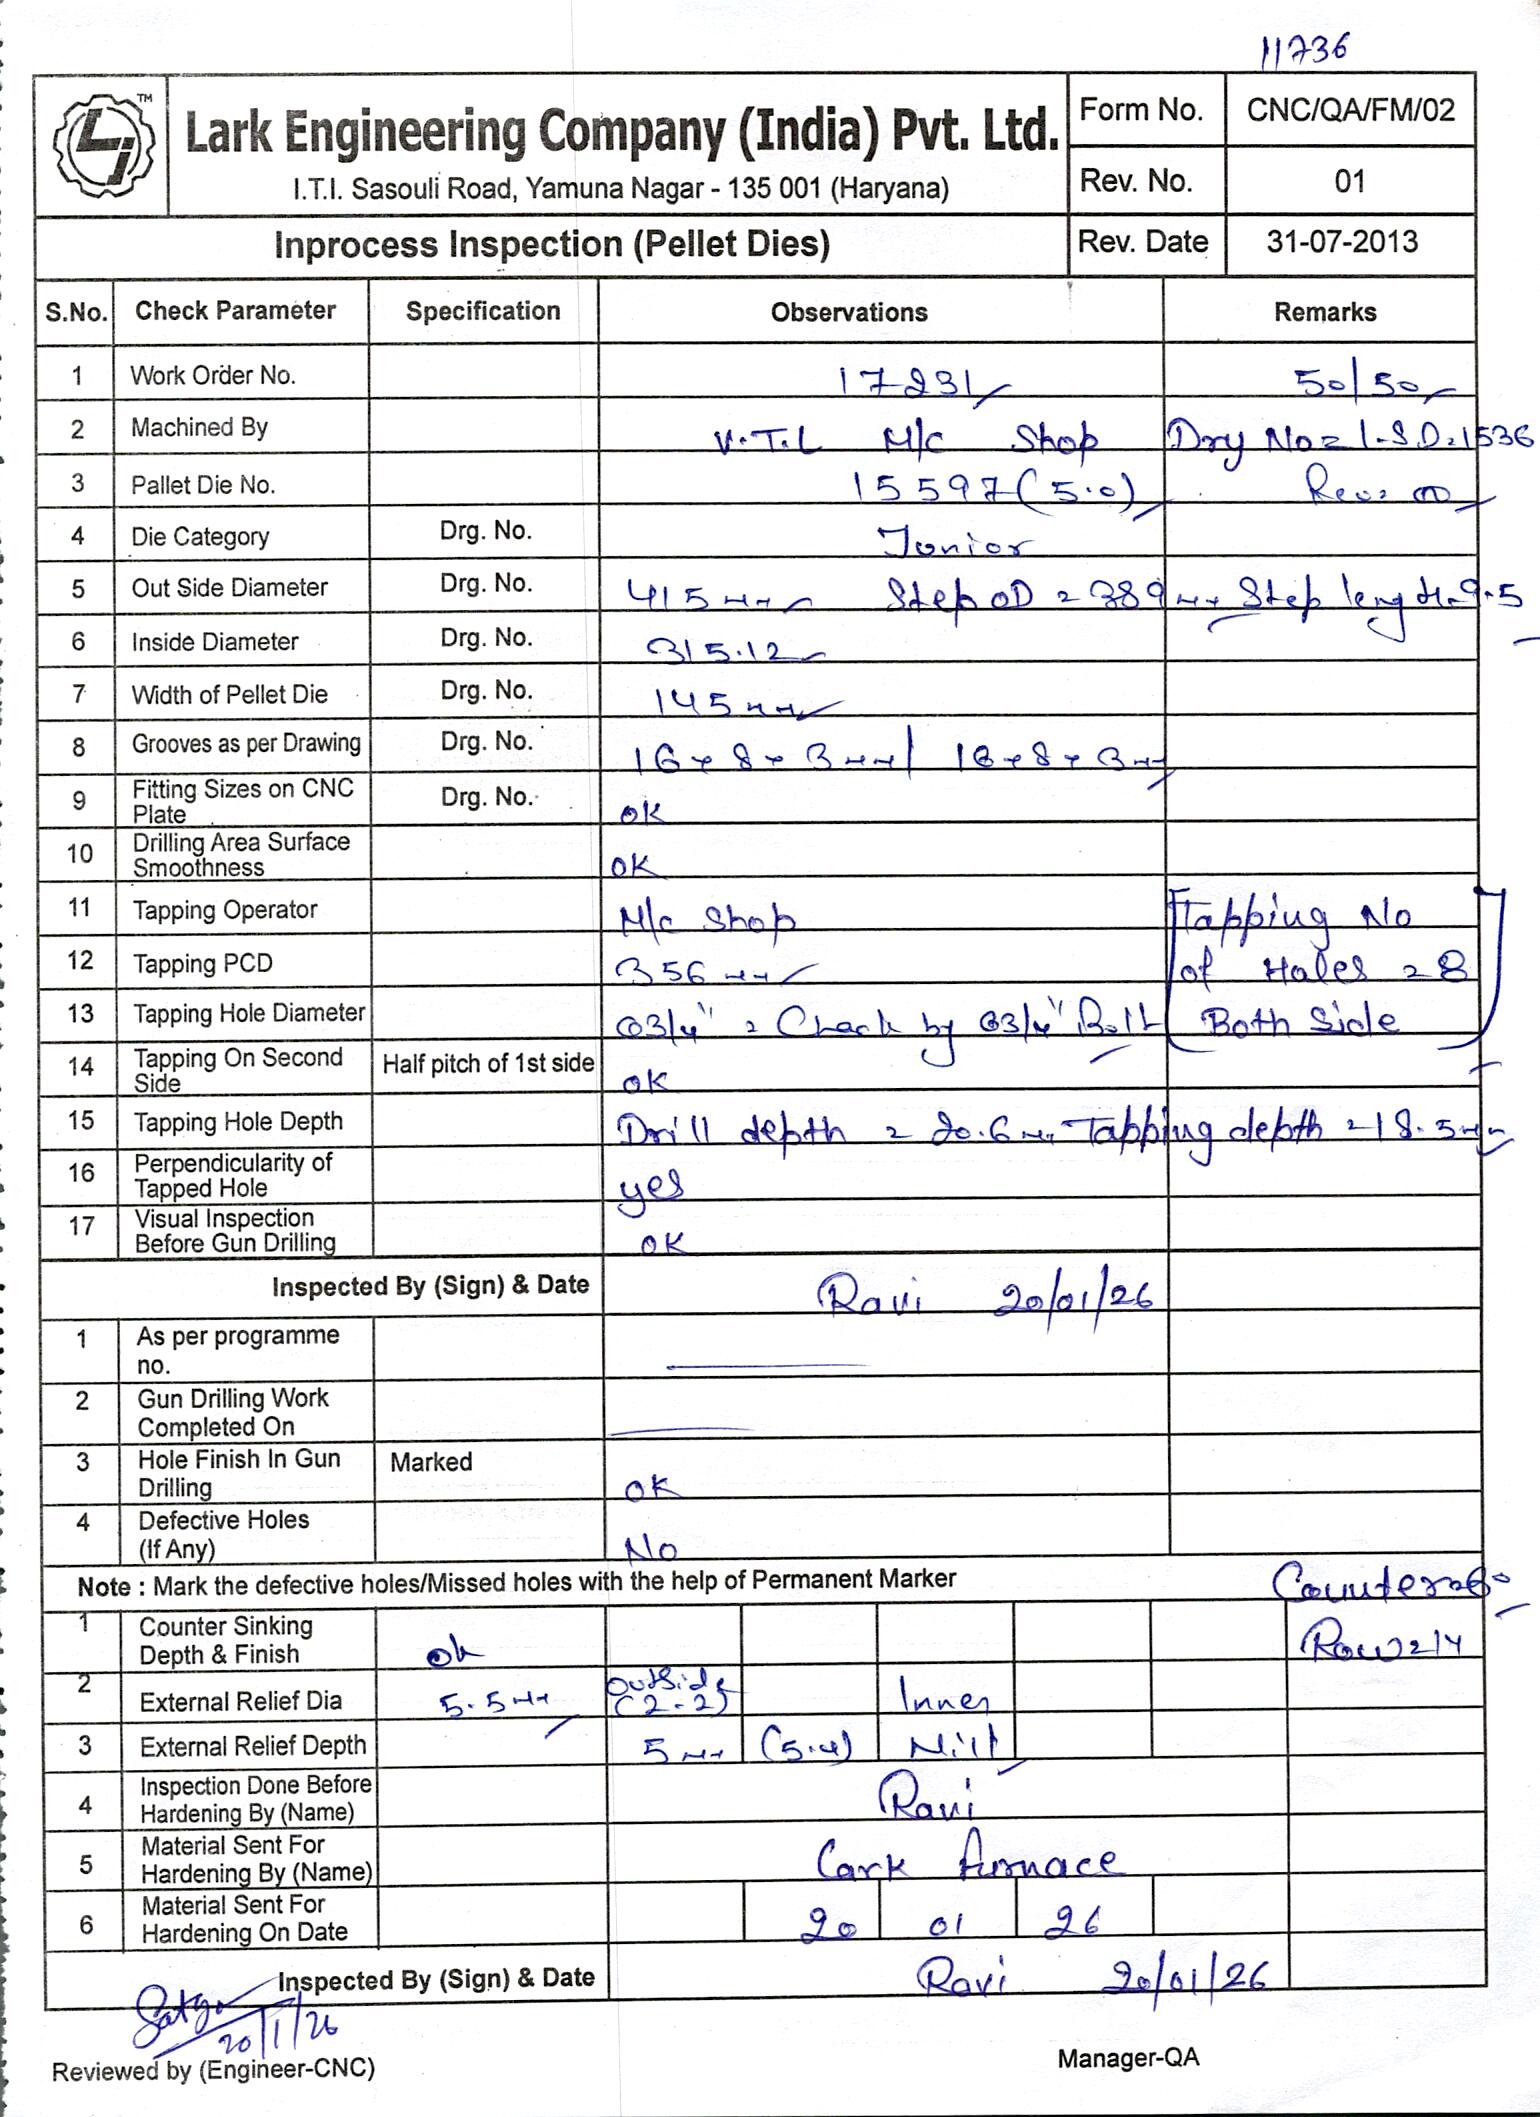 11736
LJ TM
Lark Engineering Company (India) Pvt. Ltd.
I.T.I. Sasouli Road, Yamuna Nagar - 135 001 (Haryana)
Form No. CNC/QA/FM/02
Rev. No. 01
Inprocess Inspection (Pellet Dies)
Rev. Date 31-07-2013
S.No. Check Parameter Specification Observations Remarks
1 Work Order No. 17231 50/50
2 Machined By V.T.L M/c Shop Drg No = L.S.D.1536
3 Pallet Die No. 15597 (5.0) Rev: 00
4 Die Category Drg. No. Junior
5 Out Side Diameter Drg. No. 415 mm Step OD = 389 mm Step length = 9.5
6 Inside Diameter Drg. No. 315.12
7 Width of Pellet Die Drg. No. 145 mm
8 Grooves as per Drawing Drg. No. 16 x 8 x 3 mm / 16 x 8 x 3 mm
9 Fitting Sizes on CNC Plate Drg. No. OK
10 Drilling Area Surface Smoothness OK
11 Tapping Operator M/c Shop Tapping No
12 Tapping PCD 356 mm of Holes = 8
13 Tapping Hole Diameter Ø3/4" = Check by Ø3/4" Bolt Both Side
14 Tapping On Second Side Half pitch of 1st side OK
15 Tapping Hole Depth Drill depth = 20.6 mm Tapping depth = 18.5 mm
16 Perpendicularity of Tapped Hole yes
17 Visual Inspection Before Gun Drilling OK
Inspected By (Sign) & Date Ravi 20/01/26
1 As per programme no.
2 Gun Drilling Work Completed On
3 Hole Finish In Gun Drilling Marked OK
4 Defective Holes (If Any) No
Note : Mark the defective holes/Missed holes with the help of Permanent Marker
1 Counter Sinking Depth & Finish ok Row = 14
2 External Relief Dia 5.5 mm Outside (2-2) Inner
3 External Relief Depth 5 mm (5.4) Nill
4 Inspection Done Before Hardening By (Name) Ravi
5 Material Sent For Hardening By (Name) Lark furnace
6 Material Sent For Hardening On Date 20 01 26
Inspected By (Sign) & Date Ravi 20/01/26
20/1/26
Reviewed by (Engineer-CNC)
Manager-QA